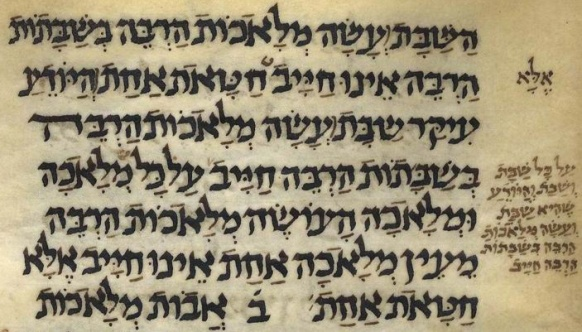 הַשַּׁבָּת וְעָשָׂה מְלָאכוֹת הַרְבֵּה בְשַׁבָּתוֹת
הַרְבֵּה אֵינוּ חַיָּיב חַטָּאת אַחַת הַיּוֹדֵעַ
עִיקַר שַׁבָּת עָשָׂה מְלָאכוֹת הַרְבֵּה
בְּשַׁבָּתוֹת הַרְבֵּה חַיָּיב עַל כָּל מְלָאכָה
וּמְלָאכָה הָעוֹשֶׂה מְלָאכוֹת הַרְבֵּה
מֵעֵין מְלָאכָה אַחַת אֵינוּ חַיָּיב אֶלָּא
חַטָּאת אַחַת ב אֲבוֹת מְלָאכוֹת
אֶלָּא
עַל כָּל שַׁבָּת
וְשַׁבָּת וְהַיּוֹדֵעַ
שֶׁהִיא שַׁבָּת
וְעָשָׂה מְלָאכוֹת
הַרְבֵּה בְּשַׁבָּתוֹת
הַרְבֵּה חַיָּיב